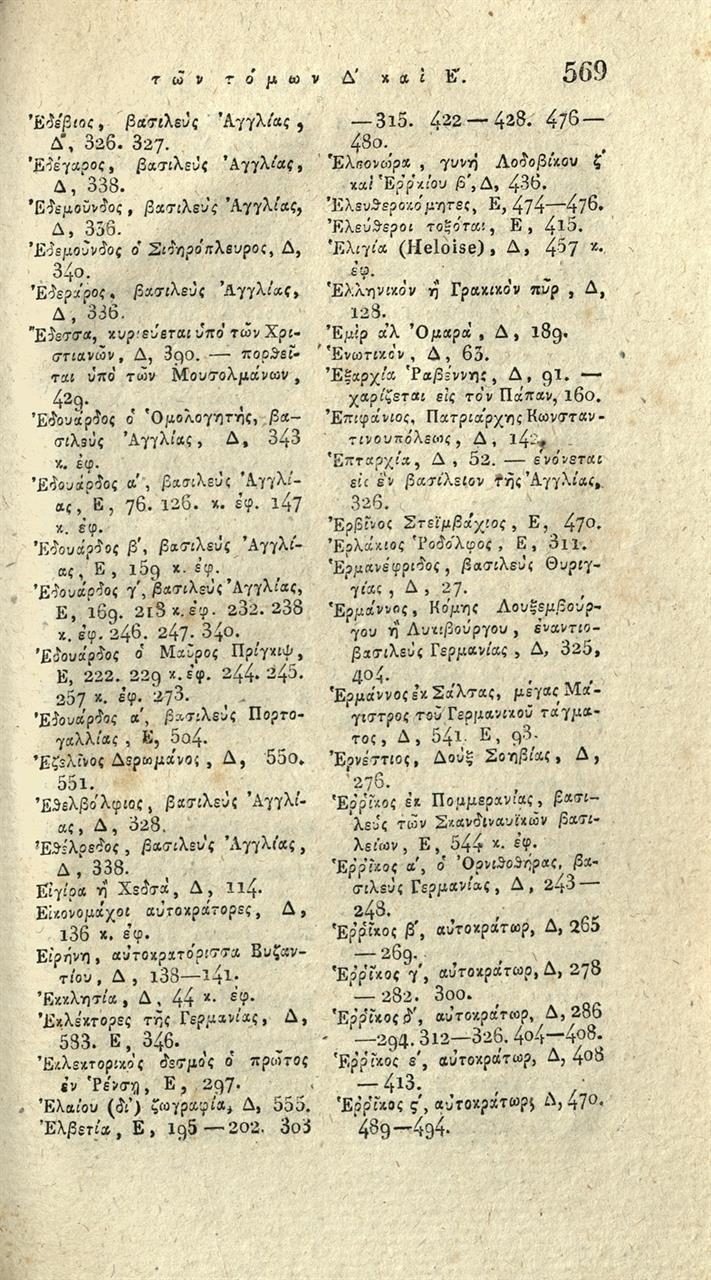 τῶν τόμων Δ΄ καὶ Ε΄. 569
Ἐδέβιος, βασιλεὺς Ἀγγλίας,
Δ, 326. 327.
Ἐδέγαρος, βασιλεὺς Ἀγγλίας,
Δ, 338.
Ἐδεμοῦνδος, βασιλεὺς Ἀγγλίας,
Δ, 336.
Ἐδεμοῦνδος ὁ Σιδηρόπλευρος, Δ,
340.
Ἐδεράρος, βασιλεὺς Ἀγγλίας,
Δ, 336.
Ἔδεσσα, κυριεύεται ὑπὸ τῶν Χρι-
στιανῶν, Δ, 390. — πορθεῖ-
ται ὑπὸ τῶν Μουσολμάνων,
429.
Ἐδουάρδος ὁ Ὁμολογητής, βα-
σιλεὺς Ἀγγλίας, Δ, 343
κ. ἑφ.
Ἐδουάρδος α΄, βασιλεὺς Ἀγγλί-
ας, Ε, 76. 126. κ. ἑφ. 147
κ. ἑφ.
Ἐδουάρδος β΄, βασιλεὺς Ἀγγλί-
ας, Ε, 159 κ. ἑφ.
Ἐδουάρδος γ΄, βασιλεὺς Ἀγγλίας,
Ε, 169. 213 κ. ἑφ. 232. 238
κ. ἑφ. 246. 247. 340.
Ἐδουάρδος ὁ Μαῦρος Πρίγκιψ,
Ε, 222. 229 κ. ἑφ. 244. 245.
257 κ. ἑφ. 273.
Ἐδουάρδος α΄, βασιλεὺς Πορτο-
γαλλίας, Ε, 504.
Ἐζελῖνος Δερωμάνος, Δ, 550.
551.
Ἐθελβόλφιος, βασιλεὺς Ἀγγλί-
ας, Δ, 328.
Ἐθέλρεδος, βασιλεὺς Ἀγγλίας,
Δ, 338.
Εἰγίρα ἢ Χεδσά, Δ, 114.
Εἰκονομάχοι αὐτοκράτορες, Δ,
136 κ. ἑφ.
Εἰρήνη, αὐτοκρατόρισσα Βυζαν-
τίου, Δ, 138—141.
Ἐκκλησία, Δ, 44 κ. ἑφ.
Ἐκλέκτορες τῆς Γερμανίας, Δ,
583. Ε, 346.
Ἐκλεκτορικὸς δεσμὸς ὁ πρῶτος
ἐν Ῥένσῃ, Ε, 297.
Ἐλαίου (δι΄) ζωγραφία, Δ, 555.
Ἐλβετία, Ε, 195—202. 303
—315. 422—428. 476—
480.
Ἐλεονώρα, γυνὴ Λοδοβίκου ζ΄
καὶ Ἐῤῥίκου β΄, Δ, 436.
Ἐλευθεροκόμητες, Ε, 474—476.
Ἐλεύθεροι τοξόται, Ε, 415.
Ἐλιγία (Heloise), Δ, 457 κ.
ἑφ.
Ἑλληνικὸν ἢ Γραικικὸν πῦρ, Δ,
128.
Ἐμὶρ ἀλ Ὀμαρά, Δ, 189.
Ἑνωτικόν, Δ, 63.
Ἐξαρχία Ῥαβέννης, Δ, 91. —
χαρίζεται εἰς τὸν Πάπαν, 160.
Ἐπιφάνιος, Πατριάρχης Κωνσταν-
τινουπόλεως, Δ, 142.
Ἑπταρχία, Δ, 52. — ἑνόνεται
εἰς ἓν βασίλειον τῆς Ἀγγλίας,
326.
Ἐρβῖνος Στεϊμβάχιος, Ε, 470.
Ἐρλάκιος Ῥοδόλφος, Ε, 311.
Ἐρμανέφριδος, βασιλεὺς Θυριγ-
γίας, Δ, 27.
Ἐρμάννος, Κόμης Λουξεμβούρ-
γου ἢ Λυκιβούργου, ἐναντιο-
βασιλεὺς Γερμανίας, Δ, 325,
404.
Ἐρμάννος ἐκ Σάλτσας, μέγας Μά-
γιστρος τοῦ Γερμανικοῦ τάγμα-
τος, Δ, 541. Ε, 93.
Ἐρνέστιος, Δοὺξ Σοηβίας, Δ,
276.
Ἐῤῥῖκος ἐκ Πομμερανίας, βασι-
λεὺς τῶν Σκανδιναυϊκῶν βασι-
λείων, Ε, 544 κ. ἑφ.
Ἐῤῥῖκος α΄, ὁ Ὀρνιθοθήρας, βα-
σιλεὺς Γερμανίας, Δ, 243—
248.
Ἐῤῥῖκος β΄, αὐτοκράτωρ, Δ, 265
—269.
Ἐῤῥῖκος γ΄, αὐτοκράτωρ, Δ, 278
—282. 300.
Ἐῤῥῖκος δ΄, αὐτοκράτωρ, Δ, 286
—294. 312—326. 404—408.
Ἐῤῥῖκος ε΄, αὐτοκράτωρ, Δ, 408
—413.
Ἐῤῥῖκος ς΄, αὐτοκράτωρ, Δ, 470.
489—494.